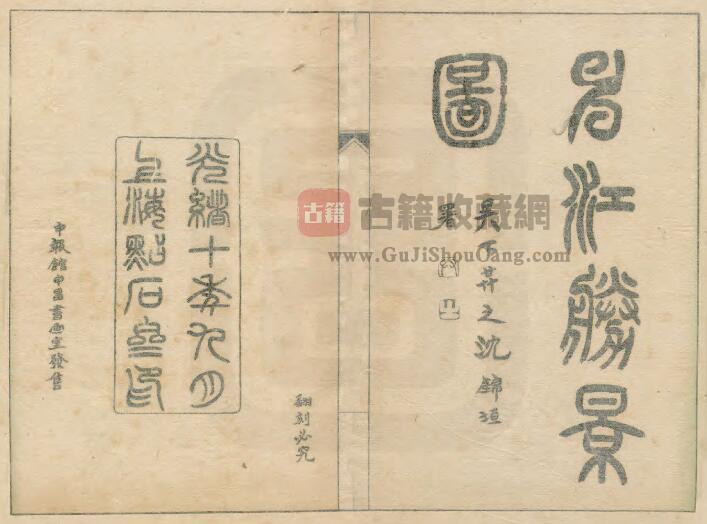 申江勝景
圖
吳下昇之沈錦垣
署
翻刻必究
光緒十年九月
上海點石齋印
申報館申昌書畫室發售
古籍
古籍收藏網
www.GuJiShouCang.com